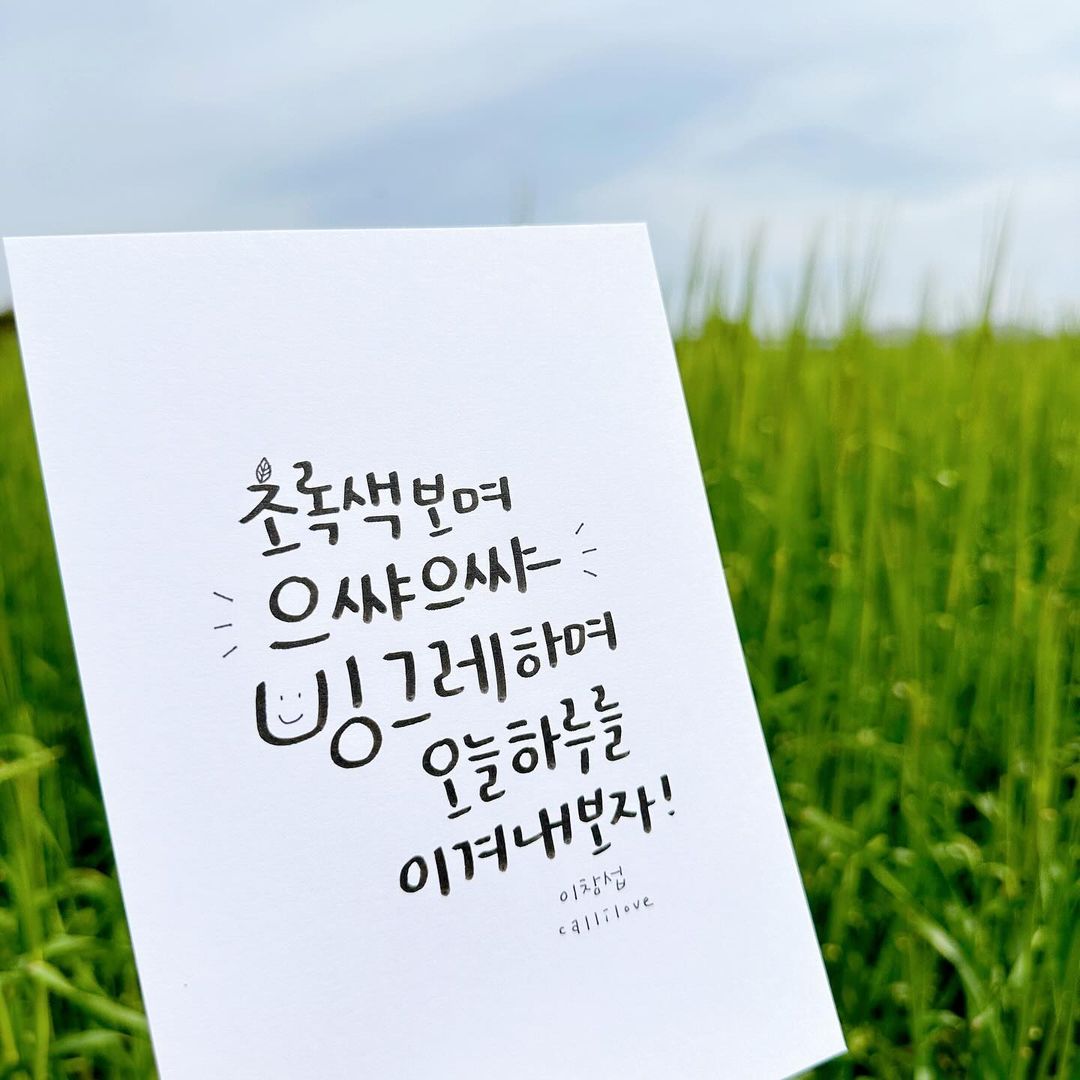 초록색 보며
으쌰으쌰
빙그레하며
오늘 하루를
이겨내보자!
이창섭
callilove